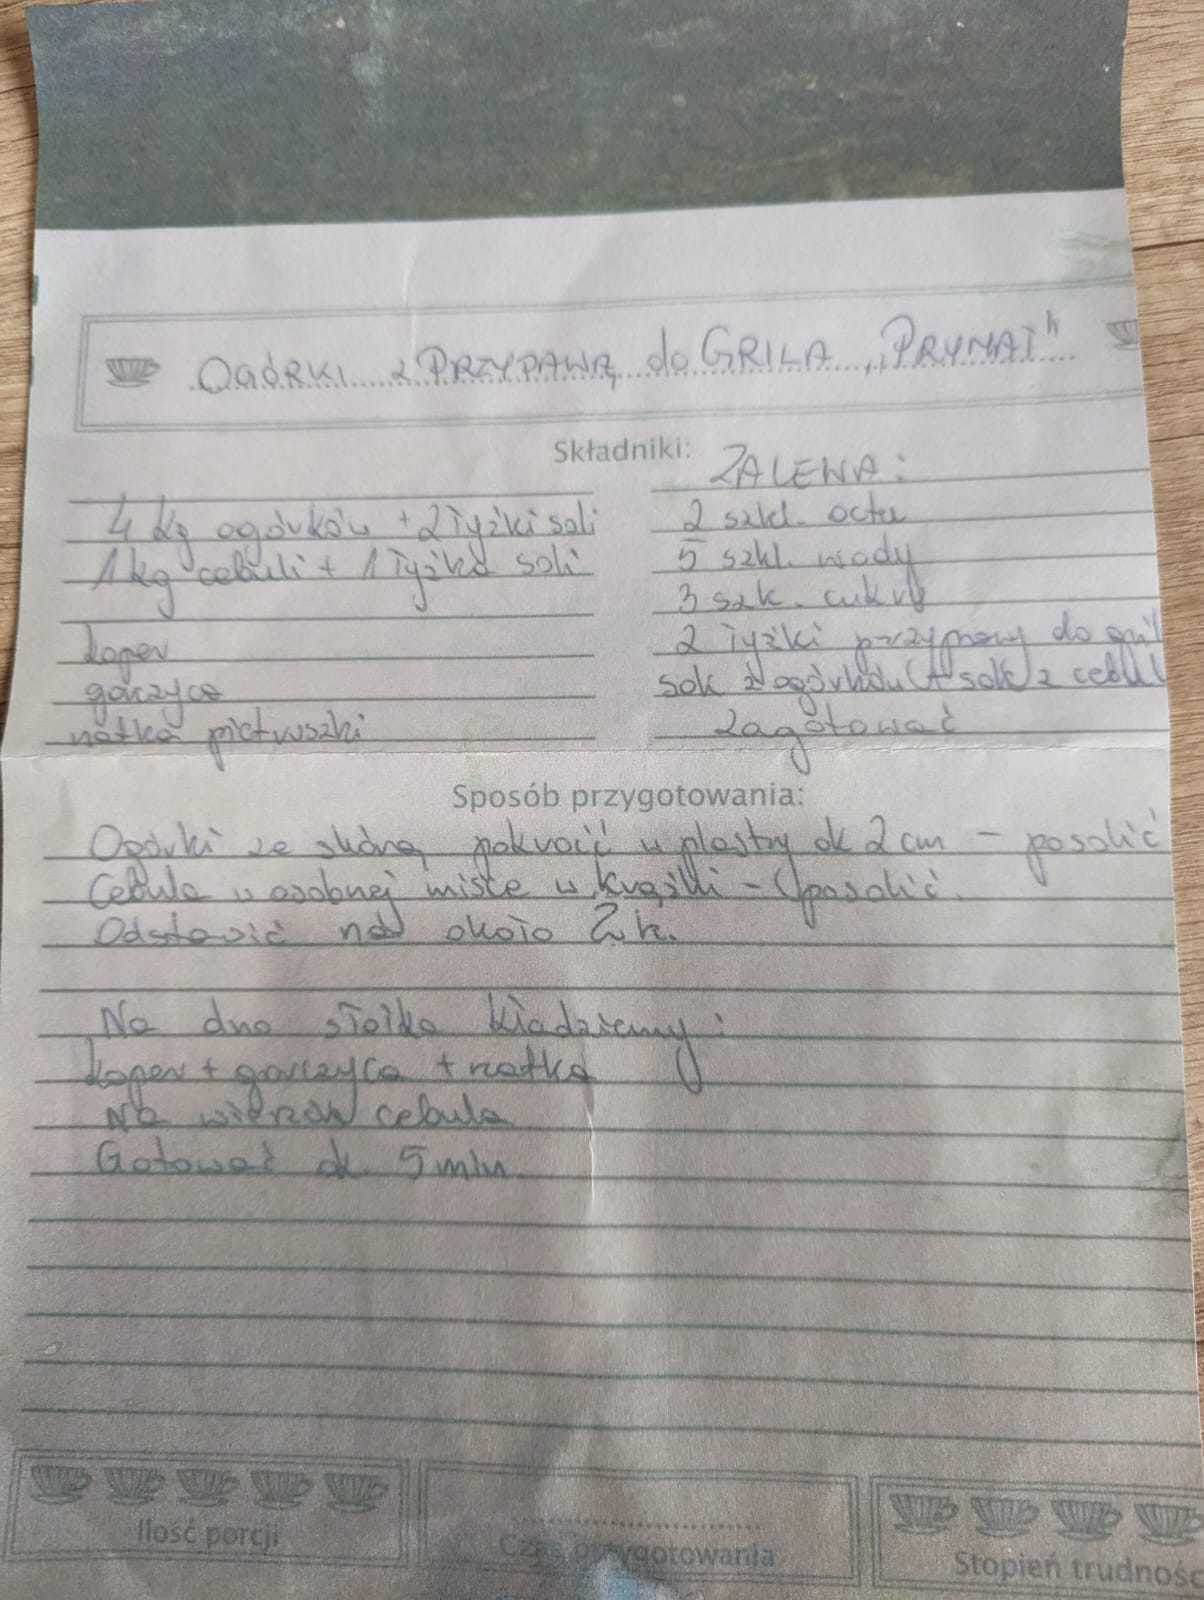 OGÓRKI z PRZYPAWĄ do GRILA „PRYMAT"
Składniki:
4 kg ogórków + 2 łyżki soli
1 kg cebuli + 1 łyżka soli
koper
gorczyca
natka pietruszki
ZALEWA:
2 szkl. octu
5 szkl. wody
3 szk. cukru
2 łyżki przyprawy do gril
sok z ogórków (+ sok z cebul
zagotować
Sposób przygotowania:
Ogórki ze skórą pokroić w plastry ok 2 cm - posolić
Cebula w osobnej misce w krążki - posolić.
Odstawić na około 2 h.
Na dno słoika kładziemy:
koper + gorczyca + natka
Na wierzch cebula
Gotować ok. 5 min
Ilość porcji
Czas przygotowania
Stopień trudnośc